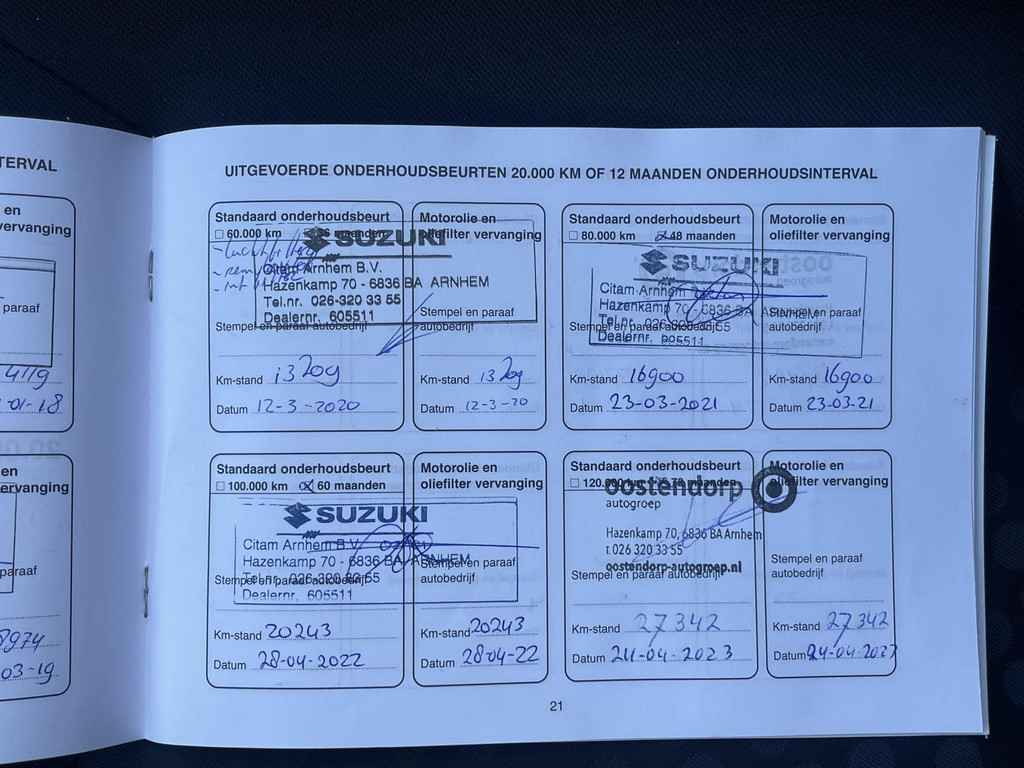 TERVAL
en
vervanging
paraaf
4119
-01-18
en
ervanging
araaf
8974
03-19
UITGEVOERDE ONDERHOUDSBEURTEN 20.000 KM OF 12 MAANDEN ONDERHOUDSINTERVAL
Standaard onderhoudsbeurt
60.000 km 36 maanden
SUZUKI
Citam Arnhem B.V.
Hazenkamp 70 - 6836 BA ARNHEM
Tel.nr. 026-320 33 55
Dealernr. 605511
Stempel en paraaf autobedrijf
Km-stand 13209
Datum 12-3-2020
Motorolie en
oliefilter vervanging
Stempel en paraaf
autobedrijf
Km-stand 13209
Datum 12-3-20
Standaard onderhoudsbeurt
80.000 km 48 maanden
SUZUKI
Citam Arnhem
Hazenkamp 70 - 6836 BA ARNHEM
Tel.nr. 026-320 33 55
Dealernr. 605511
Stempel en paraaf autobedrijf
Km-stand 16900
Datum 23-03-2021
Motorolie en
oliefilter vervanging
Stempel en paraaf
autobedrijf
Km-stand 16900
Datum 23-03-21
Standaard onderhoudsbeurt
100.000 km 60 maanden
SUZUKI
Citam Arnhem B.V.
Hazenkamp 70 - 6836 BA ARNHEM
Tel.nr. 026-320 33 55
Dealernr. 605511
Stempel en paraaf autobedrijf
Km-stand 20243
Datum 28-04-2022
Motorolie en
oliefilter vervanging
Stempel en paraaf
autobedrijf
Km-stand 20243
Datum 28-04-22
Standaard onderhoudsbeurt
120.000 km maanden
oostendorp
autogroep
Hazenkamp 70, 6836 BA Arnhem
t. 026 320 33 55
oostendorp-autogroep.nl
Stempel en paraaf autobedrijf
Km-stand 27342
Datum 24-04-2023
Motorolie en
oliefilter vervanging
Stempel en paraaf
autobedrijf
Km-stand 27342
Datum 24-04-2023
21